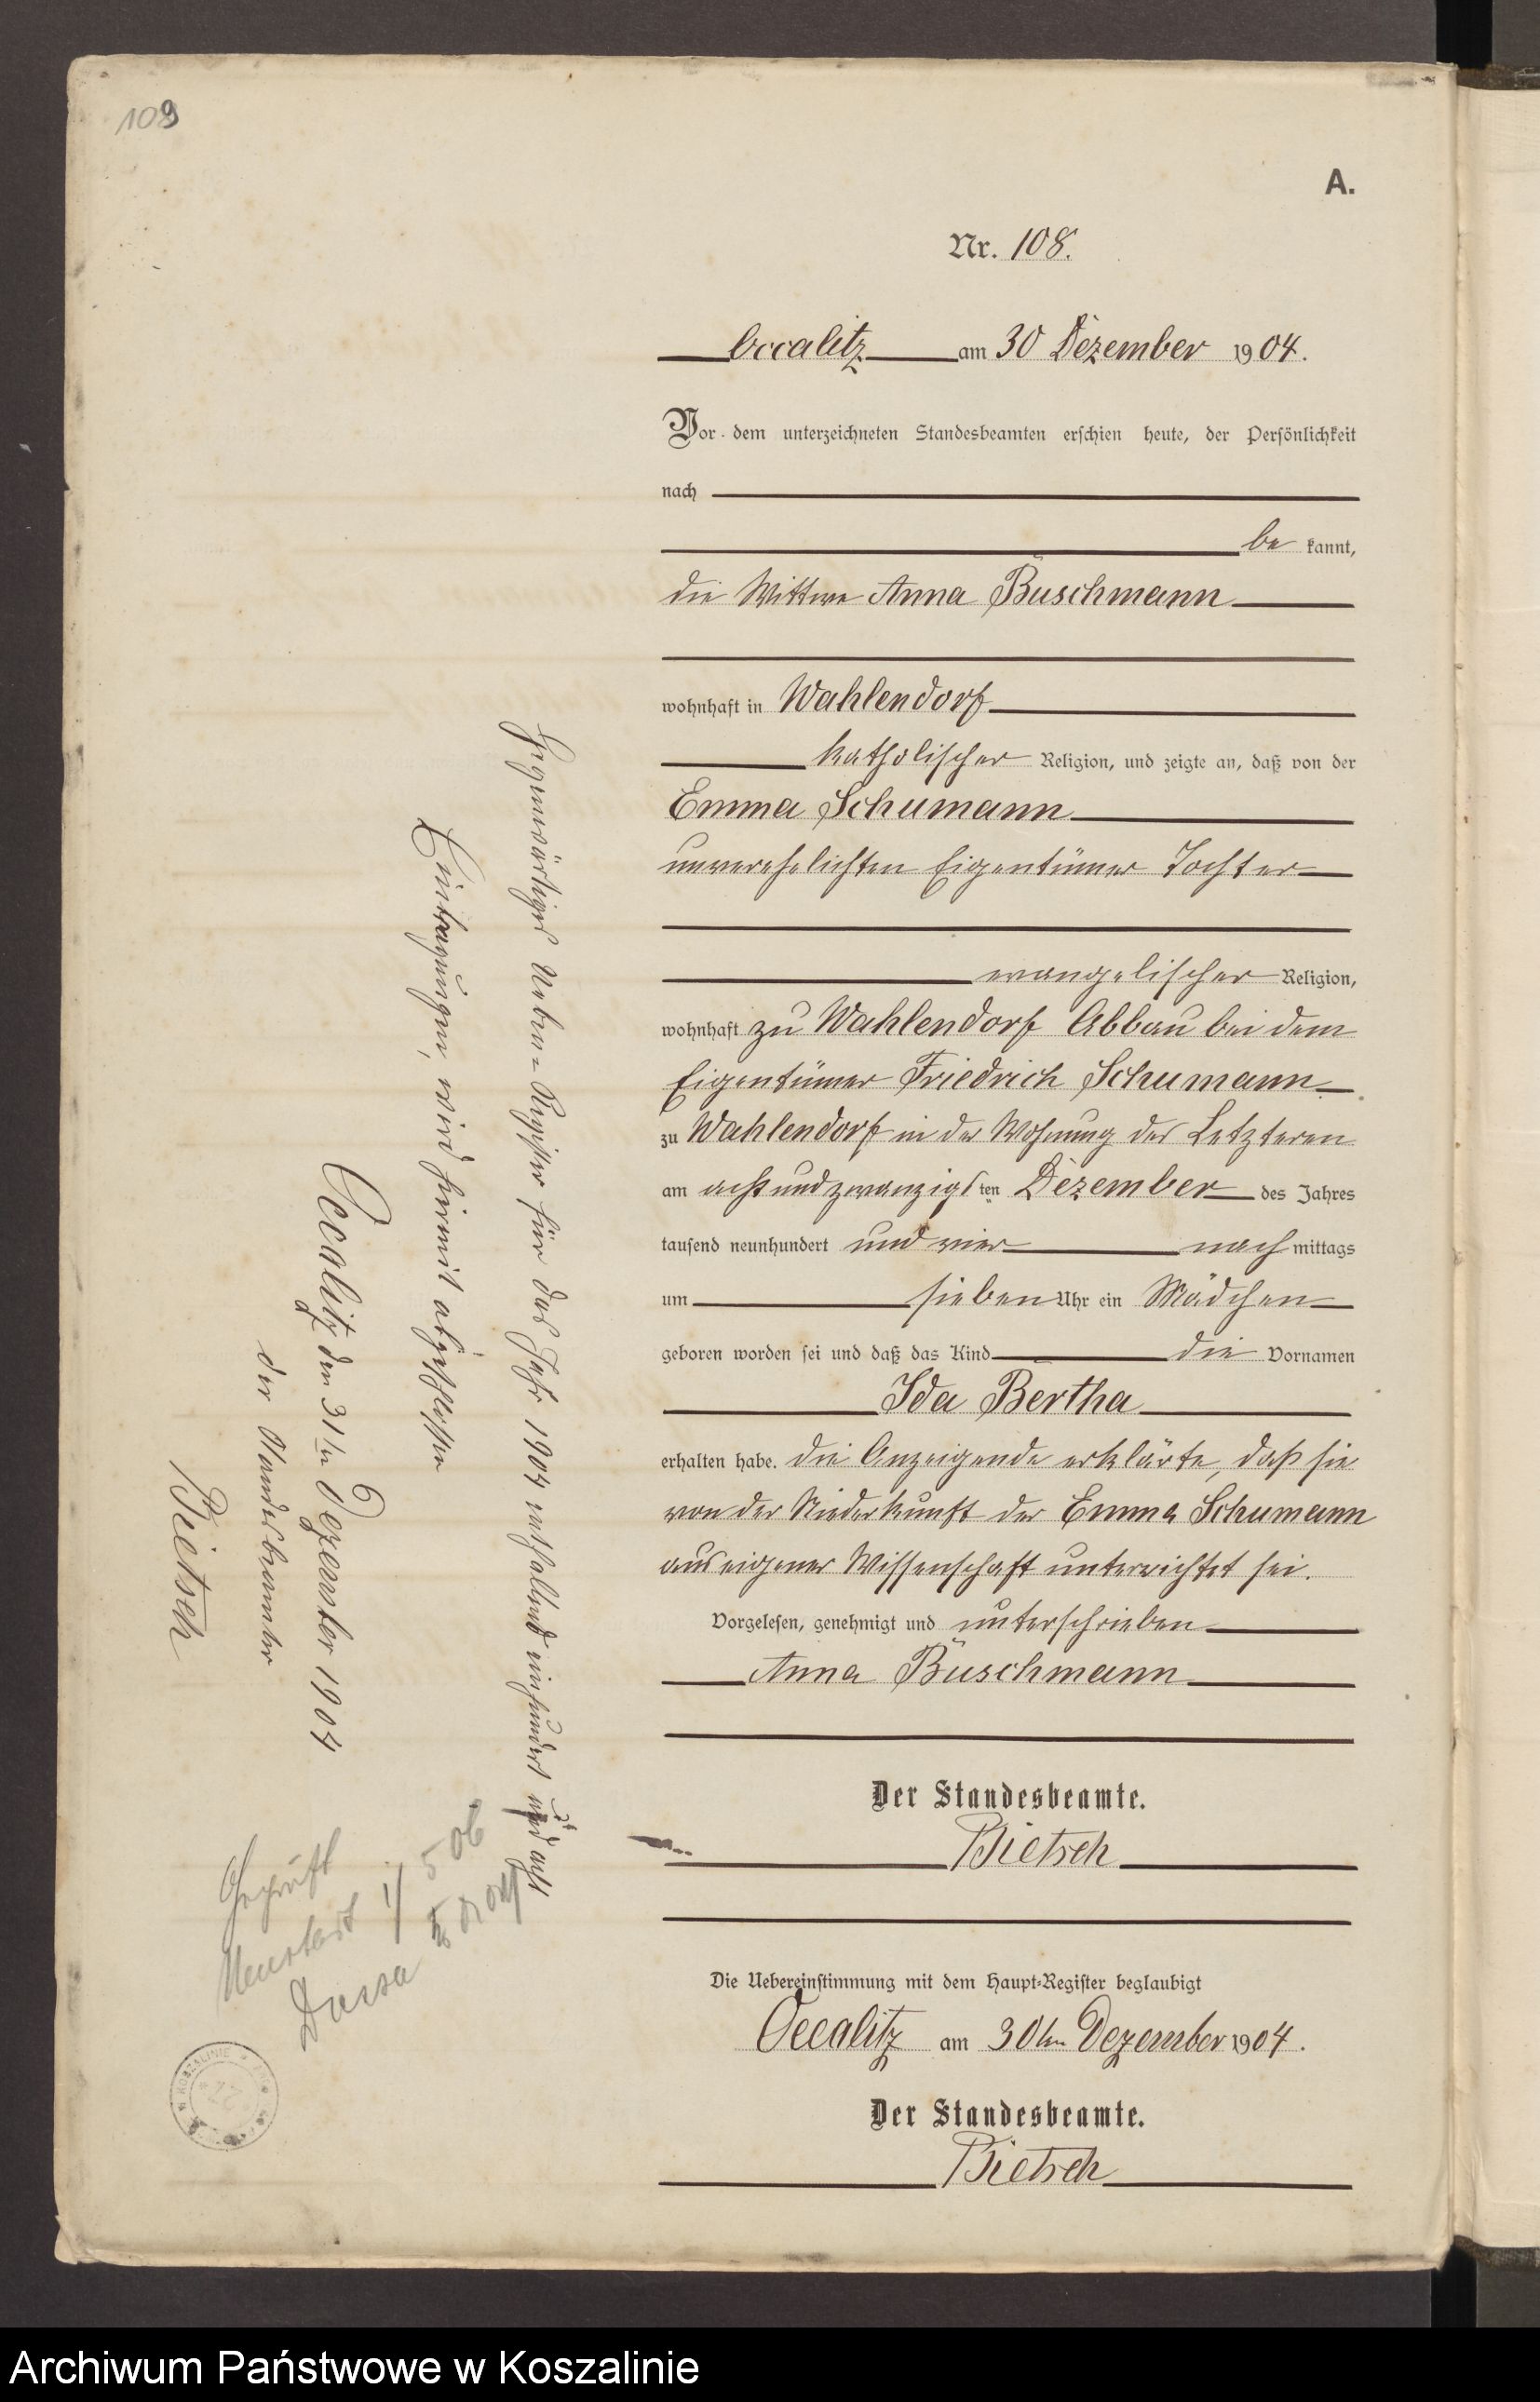 109
A.
Nr. 108.
Occalitz am 30 Dezember 1904.
Vor dem unterzeichneten Standesbeamten erschien heute, der Persönlichkeit
nach
be kannt,
die Wittwe Anna Buschmann
wohnhaft in Wahlendorf
katholischer Religion, und zeigte an, daß von der
Emma Schumann
unverehelichten Eigentümer Tochter
evangelischer Religion,
wohnhaft zu Wahlendorf Abbau bei dem
Eigentümer Friedrich Schumann
zu Wahlendorf in der Wohnung des Letzteren
am acht und zwanzigsten Dezember des Jahres
tausend neunhundert und vier nach mittags
um sieben Uhr ein Mädchen
geboren worden sei und daß das Kind die Vornamen
Ida Bertha
erhalten habe. Die Anzeigende erklärte, daß sie
von der Niederkunft der Emma Schumann
aus eigener Wissenschaft unterrichtet sei.
Vorgelesen, genehmigt und unterschrieben
Anna Buschmann
Der Standesbeamte.
Bietsch
Die Uebereinstimmung mit dem Haupt-Register beglaubigt
Occalitz am 30ten Dezember 1904.
Der Standesbeamte.
Bietsch
Gegenwärtiges Neben-Register für das Jahr 1904 enthaltend einhundert und acht
Eintragungen, wird hiermit abgeschlossen
Occalitz den 31ten Dezember 1904
Der Standesbeamte
Bietsch
Geprüft
Neustadt
Archiwum Państwowe w Koszalinie